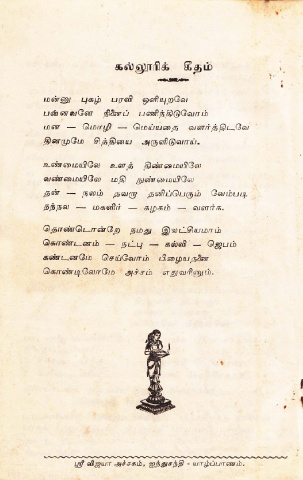 கல்லூரிக் கீதம்
மன்னு புகழ் பரவி ஒளியுறவே
பன்னவனே நினைப் பணிந்திடுவோம்
மன — மொழி — மெய்யதை வளர்த்திடவே
தினமுமே சித்தியை அருளிடுவாய்.
உண்மையிலே உளத் திண்மையிலே
வண்மையிலே மதி நுண்மையிலே
தன் — நலம் தவறா தனிப்பெரும் வேம்படி
தந்நல — மகளிர் — கழகம் — வளர்க.
தொண்டொன்றே நமது இலட்சியமாம்
கொண்டனம் — நட்பு — கல்வி — ஜெபம்
கண்டனமே செய்வோம் பிழையதனை
கொண்டிலோமே அச்சம் எதுவரினும்.
ஸ்ரீ விஜயா அச்சகம், ஐந்துசந்தி - யாழ்ப்பாணம்.